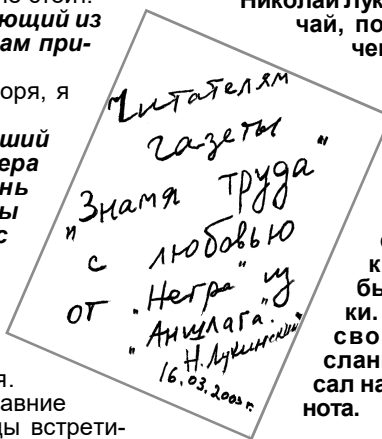 ющий из
ам при-
оря, я
ший
ера
нь
ы
с
я.
авние
ды встрети-
Читателям
газеты
"Знамя труда"
с любовью
от "Негра" из
"Аншлага."
Н. Лукинский
16.03.2003 г.
Николай Лук
чай, по
чен
к
бы
ки.
сво
слан
сал на
нота.